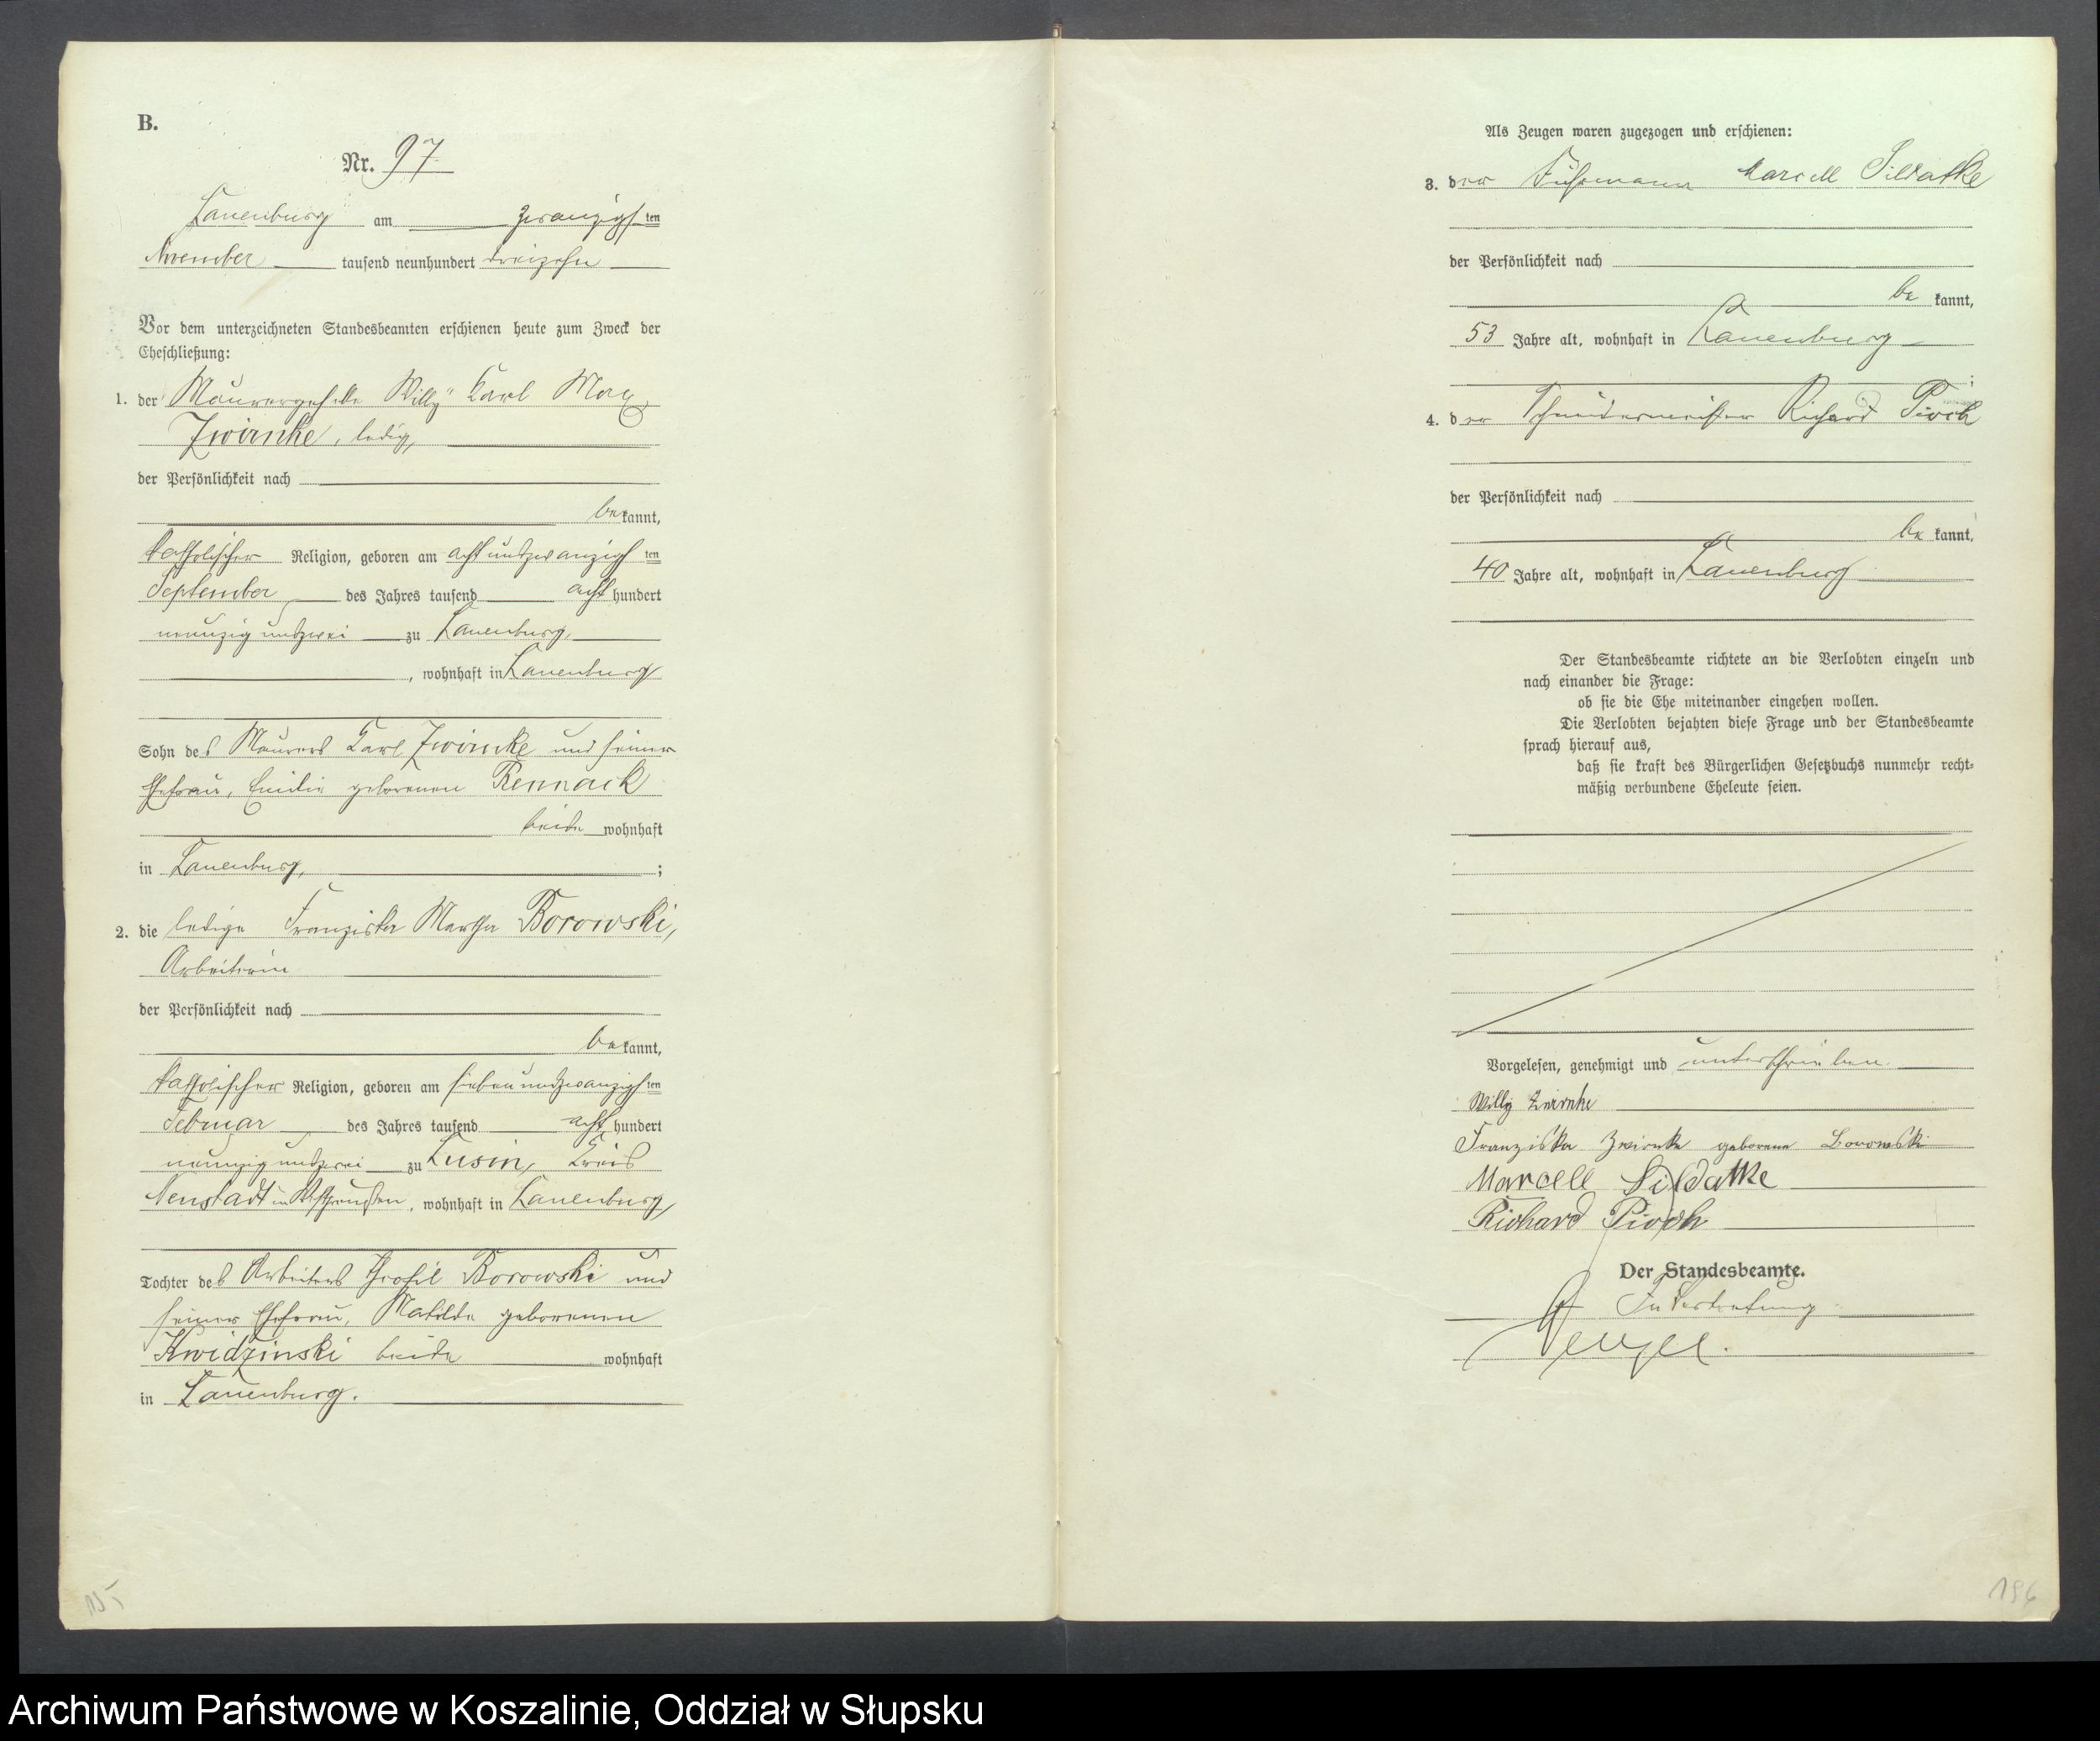 B.
Nr. 97
Lauenburg am zwanzigsten
November tausend neunhundert dreizehn
Vor dem unterzeichneten Standesbeamten erschienen heute zum Zweck der
Eheschließung:
1. der Maurergeselle Willy Karl Max
Zwirnke, ledig,
der Persönlichkeit nach
bekannt,
katholischer Religion, geboren am acht und zwanzigsten
September des Jahres tausend acht hundert
neunzig und zwei zu Lauenburg,
, wohnhaft in Lauenburg
Sohn des Maurers Karl Zwirnke und seiner
Ehefrau, Emilie geborenen Rennack
beide wohnhaft
in Lauenburg, ;
2. die ledige Franziska Martha Borowski,
Arbeiterin
der Persönlichkeit nach
bekannt,
katholischer Religion, geboren am sieben und zwanzigsten
Februar des Jahres tausend acht hundert
neunzig und zwei zu Lusin, Kreis
Neustadt in Westpreußen, wohnhaft in Lauenburg,
Tochter des Arbeiters Theofil Borowski und
seiner Ehefrau, Matilde geborenen
Kwidzinski beide wohnhaft
in Lauenburg.
195
Als Zeugen waren zugezogen und erschienen:
3. der Fuhrmann Marcell Sildatke
der Persönlichkeit nach
be kannt,
53 Jahre alt, wohnhaft in Lauenburg
;
4. der Schneidermeister Richard Pioch
der Persönlichkeit nach
be kannt,
40 Jahre alt, wohnhaft in Lauenburg
Der Standesbeamte richtete an die Verlobten einzeln und
nach einander die Frage:
ob sie die Ehe miteinander eingehen wollen.
Die Verlobten bejahten diese Frage und der Standesbeamte
sprach hierauf aus,
daß sie kraft des Bürgerlichen Gesetzbuchs nunmehr recht-
mäßig verbundene Eheleute seien.
Vorgelesen, genehmigt und unterschrieben.
Willy Zwirnke
Franziska Zwirnke geborene Borowski
Marcell Sildatke
Richard Pioch
Der Standesbeamte.
In Vertretung
196
Archiwum Państwowe w Koszalinie, Oddział w Słupsku